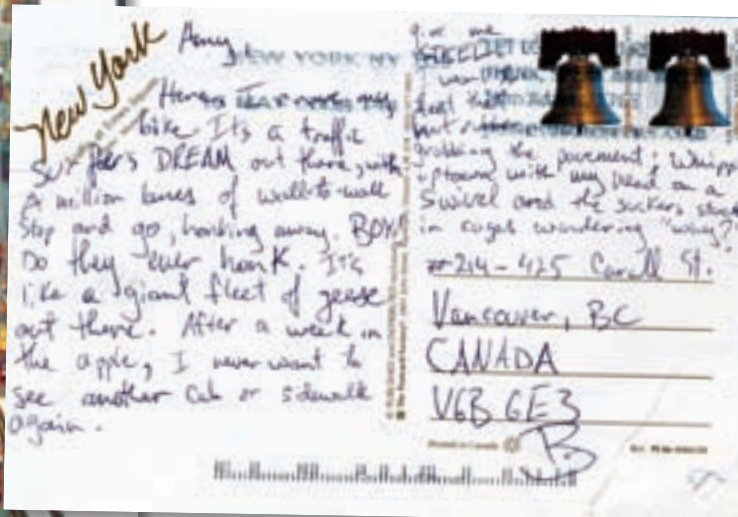 New York
Amy,
NEW YORK NY
bike. Its a traffic
DREAM out there, with
a million lanes of wall-to-wall
stop and go, honking away. BOY!
Do they ever honk. It's
like a giant fleet of geese
out there. After a week in
the apple, I never want to
see another cab or sidewalk
again.
give me
STEEL
hot rubber
grabbing the pavement; whipp
uptown with my head on a
swivel and the suckers stuck
in cages wondering "why?"
#214-425 Carall St.
Vancouver, BC
CANADA
V6B 6E3
Printed in Canada
B